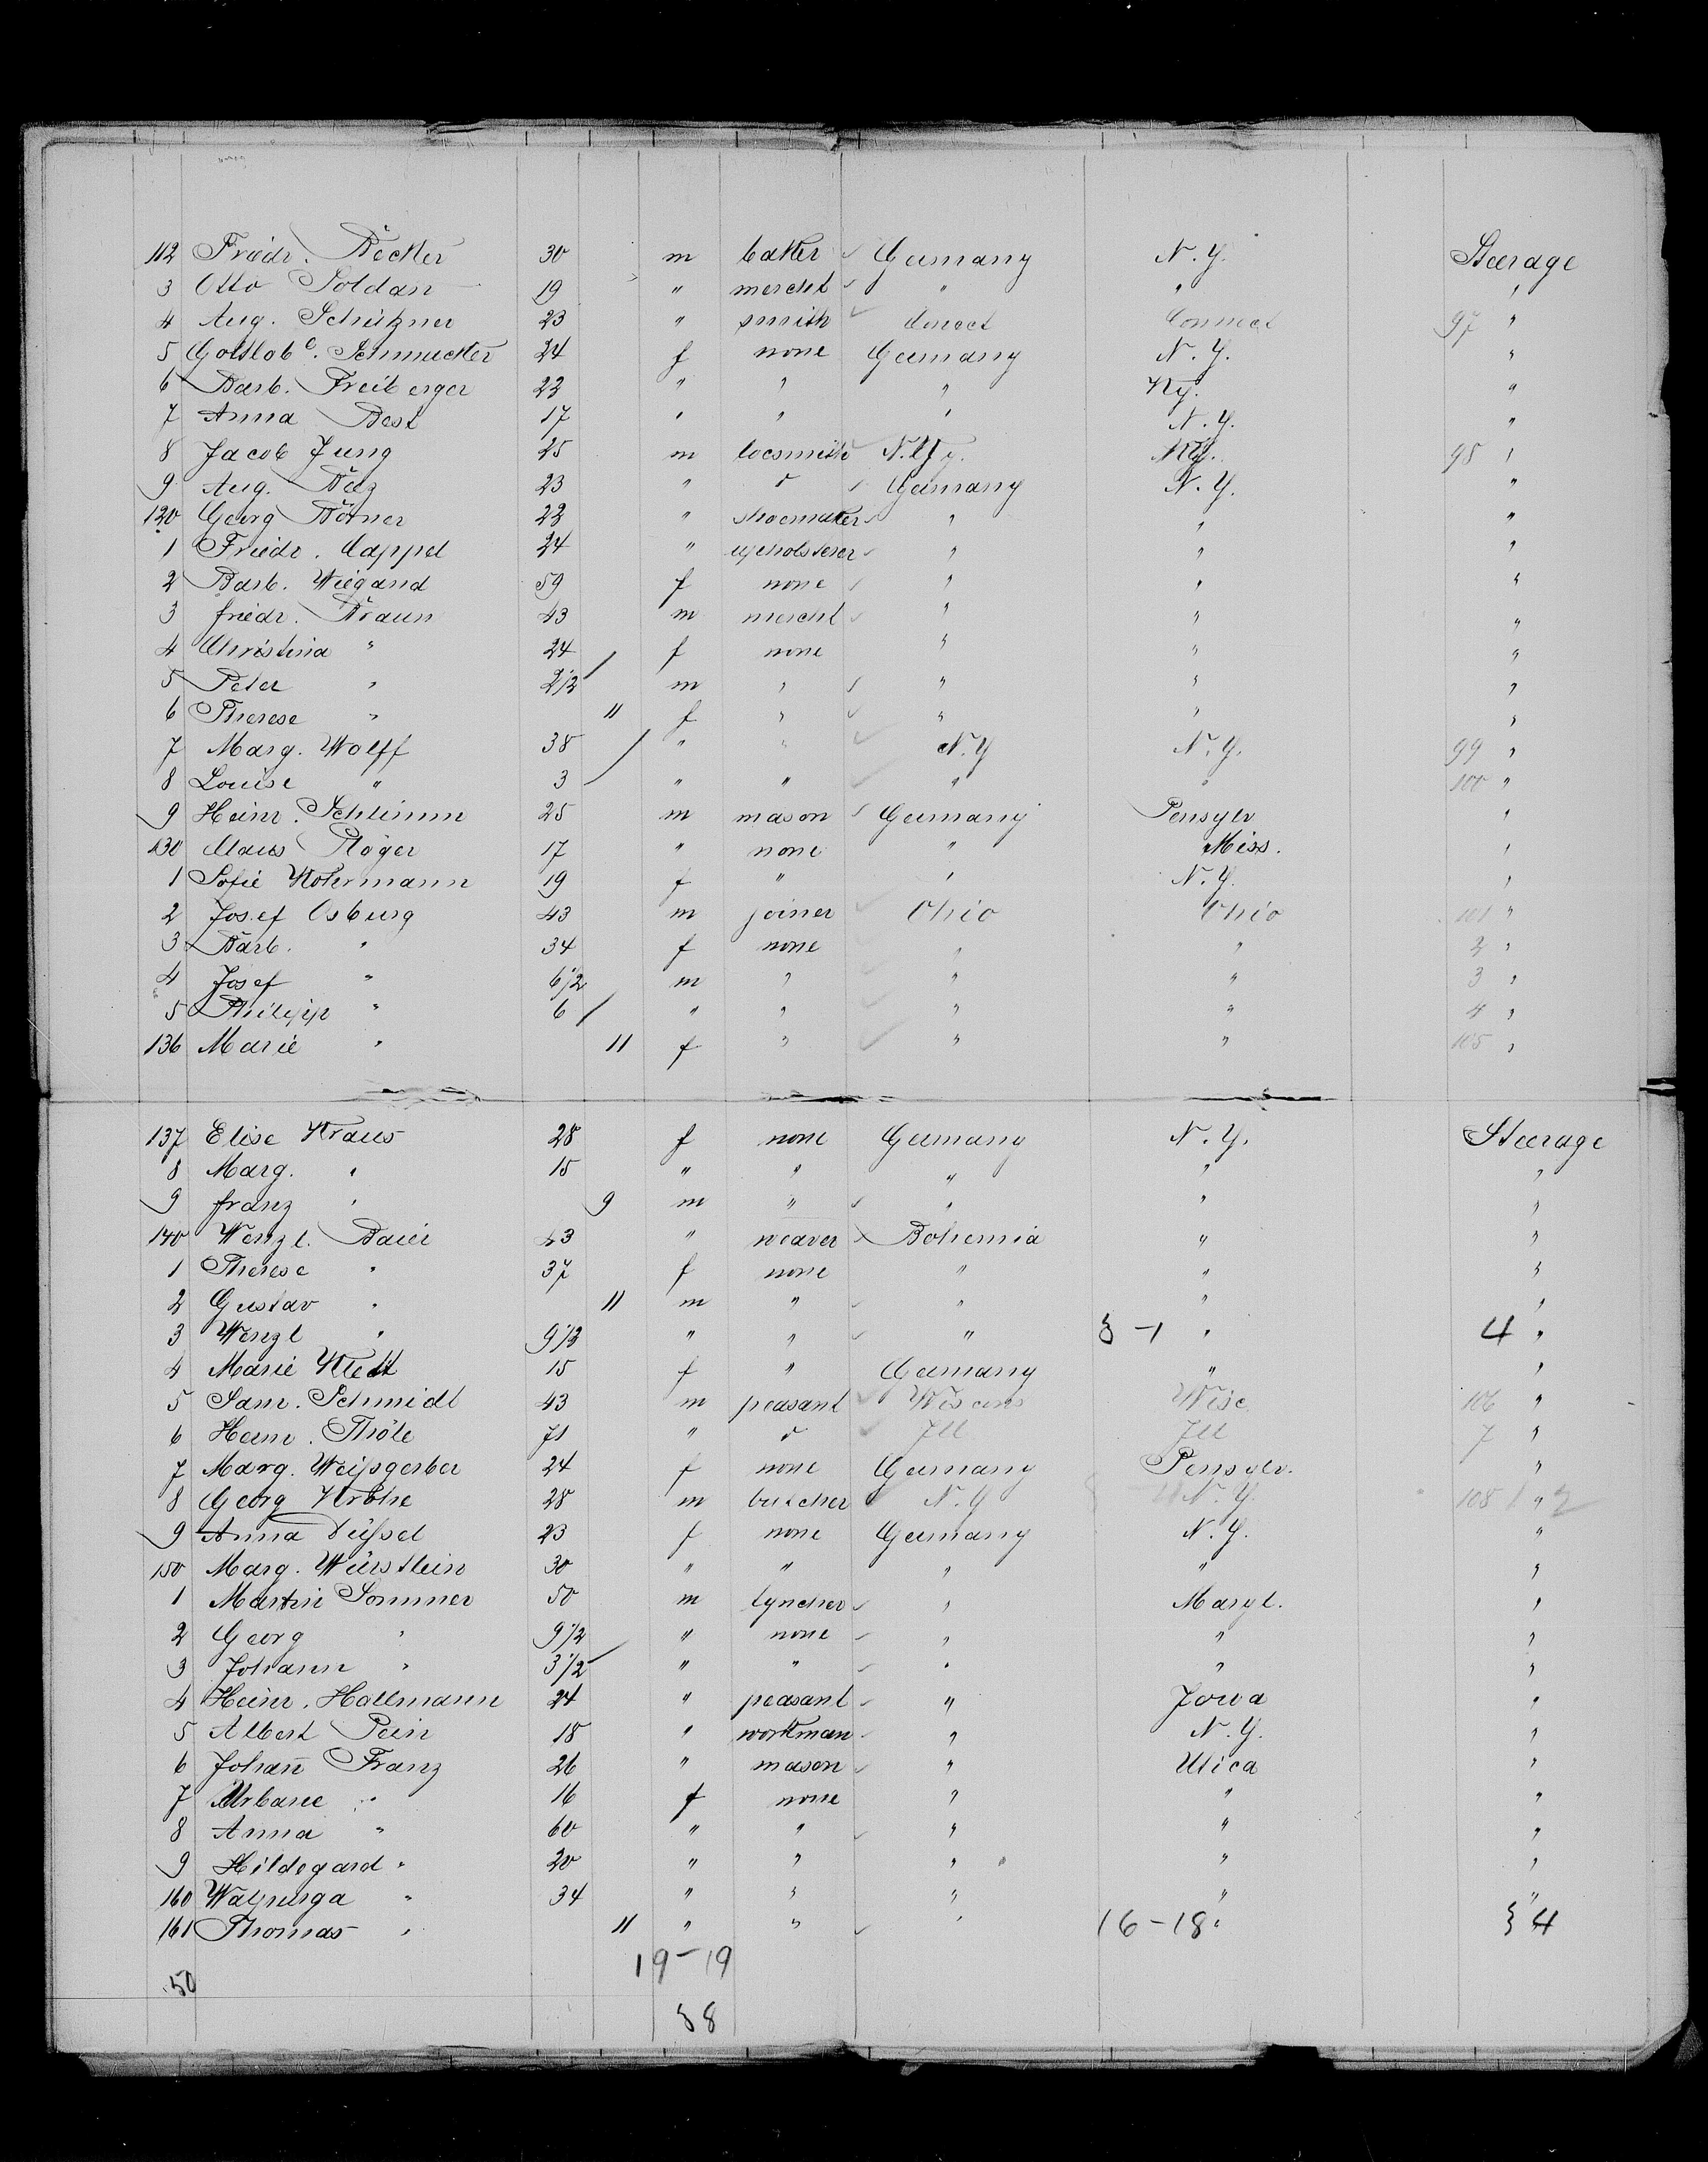 112 Friedr. Becker 30 m baker Germany N.Y. Steerage
3 Otto Soldan 19 " mercht " " "
4 Aug. Schützner 23 " smith Connect 97 "
5 Gottlob C. Schmucker 24 f none Germany N.Y. "
6 Barb. Freiberger 22 " " " Ky. "
7 Anna Best 17 " " " N.Y. "
8 Jacob Jung 25 m locsmith N.Y. 98 "
9 Aug. 23 " d Germany N.Y. "
120 Georg Börner 22 " shoemaker " " "
1 Friedr. Cappel 24 " upholsterer " " "
2 Barb. Wiegand 59 f none " " "
3 friedr. Braun 43 m mercht " " "
4 Christina " 24 f none " " "
5 Peter " 2 1/2 m " " " "
6 Therese " 11 f " " " "
7 Marg. Wolff 38 " " N.Y N.Y. 99 "
8 Louise " 3 " " " " 100 "
9 Heinr. Schlimm 25 m mason Germany Pensylv "
130 Claus Plöger 17 " none " Miss. "
1 Sofie Kotermann 19 f " " N.Y. "
2 Josef Osburg 43 m joiner Ohio Ohio 101 "
3 Barb. " 34 f none " " 2 "
4 Josef " 6 1/2 m " " " 3 "
5 Philipp " 6 " " " " 4 "
136 Marie " 11 f " " " 105 "
137 Elise Kraus 28 f none Germany N.Y. Steerage
8 Marg. " 15 " " " " "
9 franz " 9 m " " " "
140 Wenzl. Baier 43 " weaver Bohemia " "
1 Therese " 37 f none " " "
2 Gustav " 11 m " " " "
3 Wenzl " 9 1/2 " " " 8 - 1 " 4 "
4 Marie Klett 15 f " Germany " "
5 Sam. Schmidt 43 m peasant Wiscons Wisc 106 "
6 Herm. Thöle 71 " d Ill Ill 7 "
7 Marg. Weißgerber 24 f none Germany Pensylv. "
8 Georg Krohe 28 m butcher N.Y N.Y. 108 " 2
9 Anna Düssel 23 f none Germany N.Y. "
150 Marg. Würstlein 30 " " " " "
1 Martin Sommer 50 m lyncher " Maryl. "
2 Georg " 9 1/2 " none " " "
3 Johann " 3 1/2 " " " " "
4 Heinr. Hallmann 24 " peasant " Jowa "
5 Albert Pein 18 " workman " N.Y. "
6 Johañ Franz 26 " mason " Utica "
7 Urbane " 16 f none " " "
8 Anna " 60 " " " " "
9 Hildegard " 20 " " " " "
160 Walpurga " 34 " " " " "
161 Thomas " 11 " " " 16 - 18 " 4
19 - 19
50
88